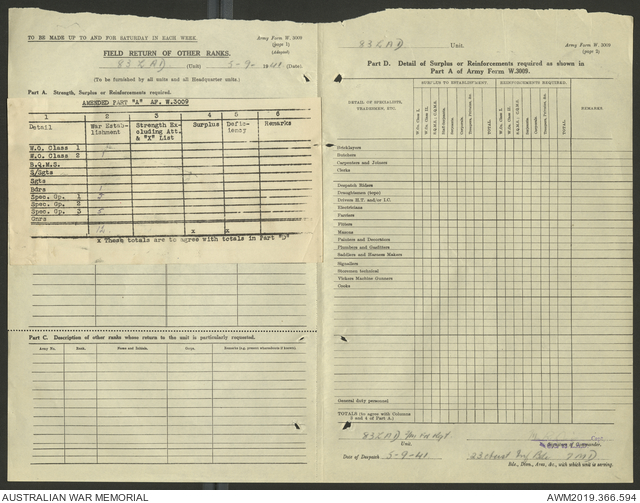 TO BE MADE UP TO AND FOR SATURDAY IN EACH WEEK.
Army Form W. 3009
(page 1)
(Adapted)
FIELD RETURN OF OTHER RANKS.
83 LAD (Unit) 5-9-1941 (Date).
(To be furnished by all units and all Headquarter units.)
Part A. Strength, Surplus or Reinforcements required.
AMENDED PART "A" AF. W.3009
1 2 3 4 5 6
Detail War Establishment Strength Excluding Att. & "X" List Surplus Deficiency Remarks
W.O. Class 1
W.O. Class 2 1
B.Q.M.S.
S/Sgts
Sgts
Bdrs 1
Spec. Gp. 1
Spec. Gp. 2
Spec. Gp. 3 5
Gnrs
12 x x
x These totals are to agree with totals in Part "D"
Part C. Description of other ranks whose return to the unit is particularly requested.
Army No. Rank. Name and Initials. Corps. Remarks (e.g. present whereabouts if known).
83 LAD Unit.
Army Form W. 3009
(page 2)
Part D. Detail of Surplus or Reinforcements required as shown in
Part A of Army Form W.3009.
DETAIL OF SPECIALISTS, TRADESMEN, ETC.
SURPLUS TO ESTABLISHMENT. REINFORCEMENTS REQUIRED.
W.Os. Class I. W.Os. Class II. Staff Serjeants. Serjeants. Corporals. TOTAL.
REMARKS
Bricklayers
Butchers
Carpenters and Joiners
Clerks
Despatch Riders
Draughtsmen (topo)
Drivers M.T. and/or I.C.
Electricians
Farriers
Fitters
Masons
Painters and Decorators
Plumbers and Gasfitters
Saddlers and Harness Makers
Signallers
Storemen technical
Vickers Machine Gunners
Cooks
General duty personnel
TOTALS (to agree with Columns
3 and 4 of Part A.)
83 LAD
Unit.
Signature of Commander.
Date of Despatch 5-9-41
Bde., Divn., Area, &c., with which unit is serving.
AUSTRALIAN WAR MEMORIAL
AWM2019.366.594